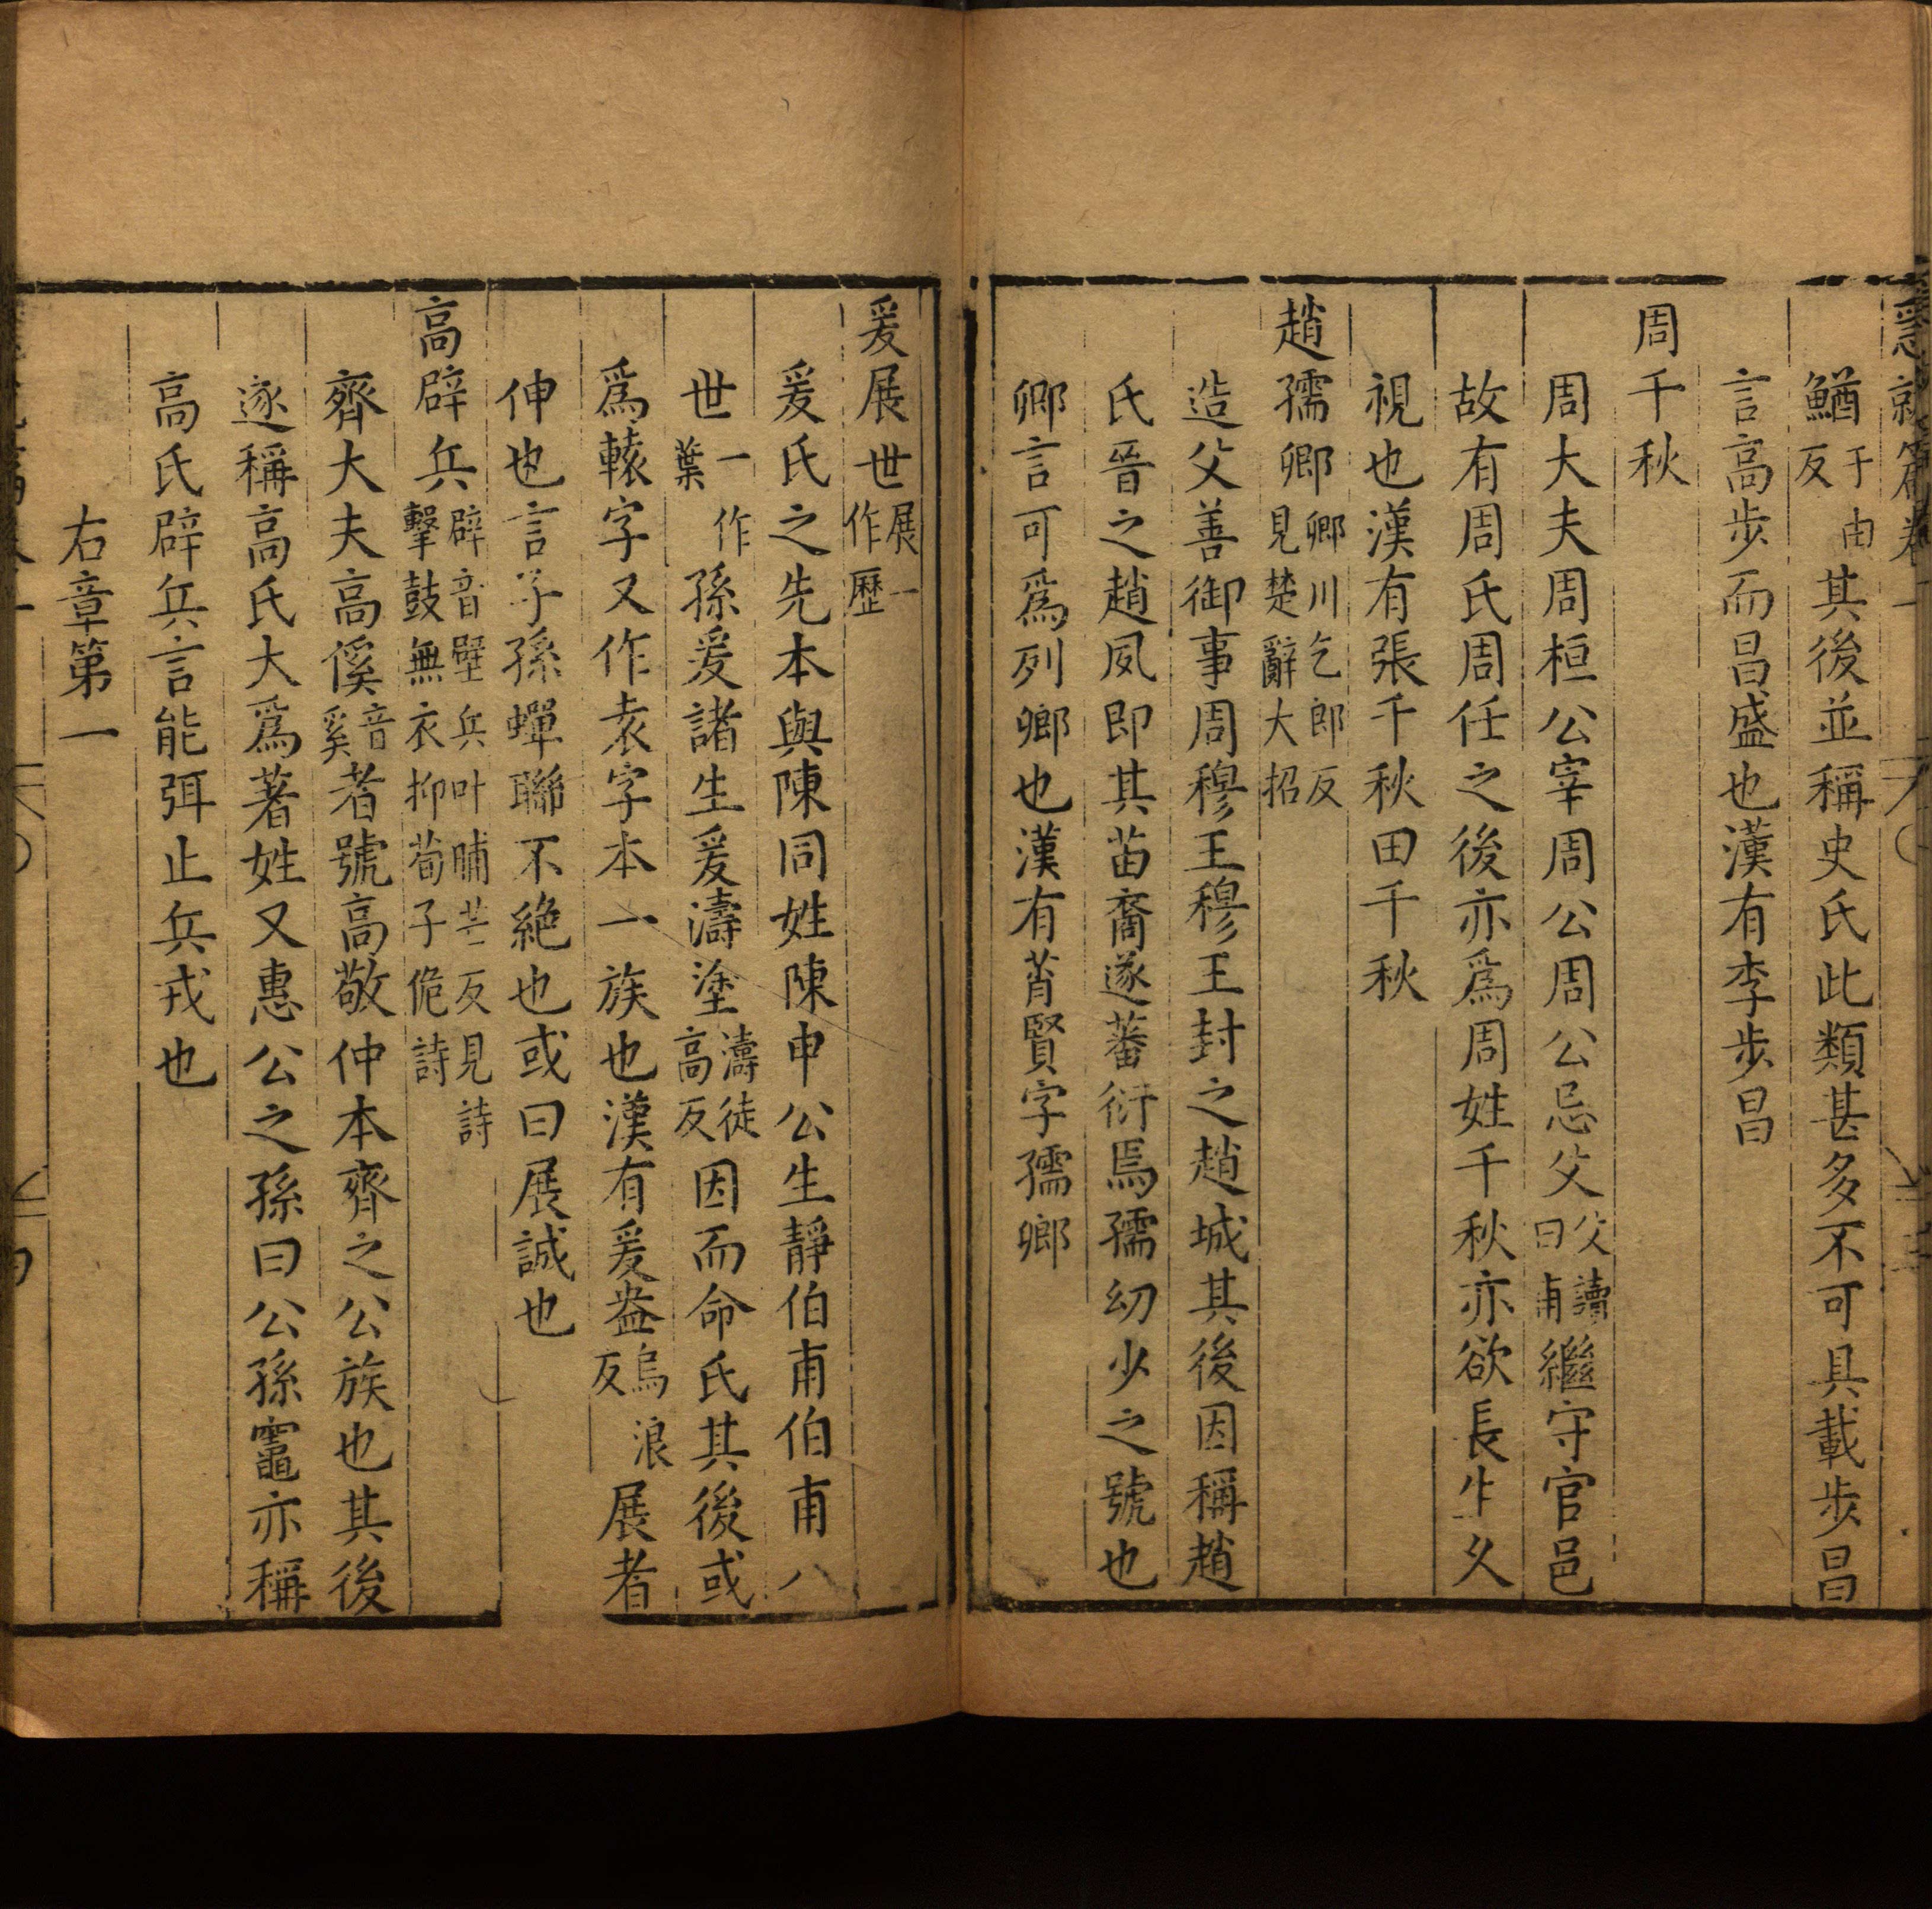 急就篇卷一
鰌于由反其後並稱史氏此類甚多不可具載步昌
言高步而昌盛也漢有李步昌
周千秋
周大夫周桓公宰周公周公忌父父讀曰甫繼守官邑
故有周氏周任之後亦爲周姓千秋亦欲長生久
視也漢有張千秋田千秋
趙孺卿卿川乞郎反見楚辭大招
造父善御事周穆王穆王封之趙城其後因稱趙
氏晉之趙夙即其苗裔遂蕃衍焉孺幼少之號也
卿言可爲列卿也漢有莦賢字孺卿
爰展世展一作歷
爰氏之先本與陳同姓陳申公生靜伯甫伯甫八
世一作葉孫爰諸生爰濤塗濤徒高反因而命氏其後或
爲轅字又作袁字本一族也漢有爰盎烏浪反展者
伸也言子孫蟬聯不絶也或曰展誠也
高辟兵辟音壁兵叶晡芒反見詩擊鼓無衣抑荀子佹詩
齊大夫高傒音奚者號高敬仲本齊之公族也其後
逐稱高氏大爲著姓又惠公之孫曰公孫竈亦稱
高氏辟兵言能弭止兵戎也
右章第一